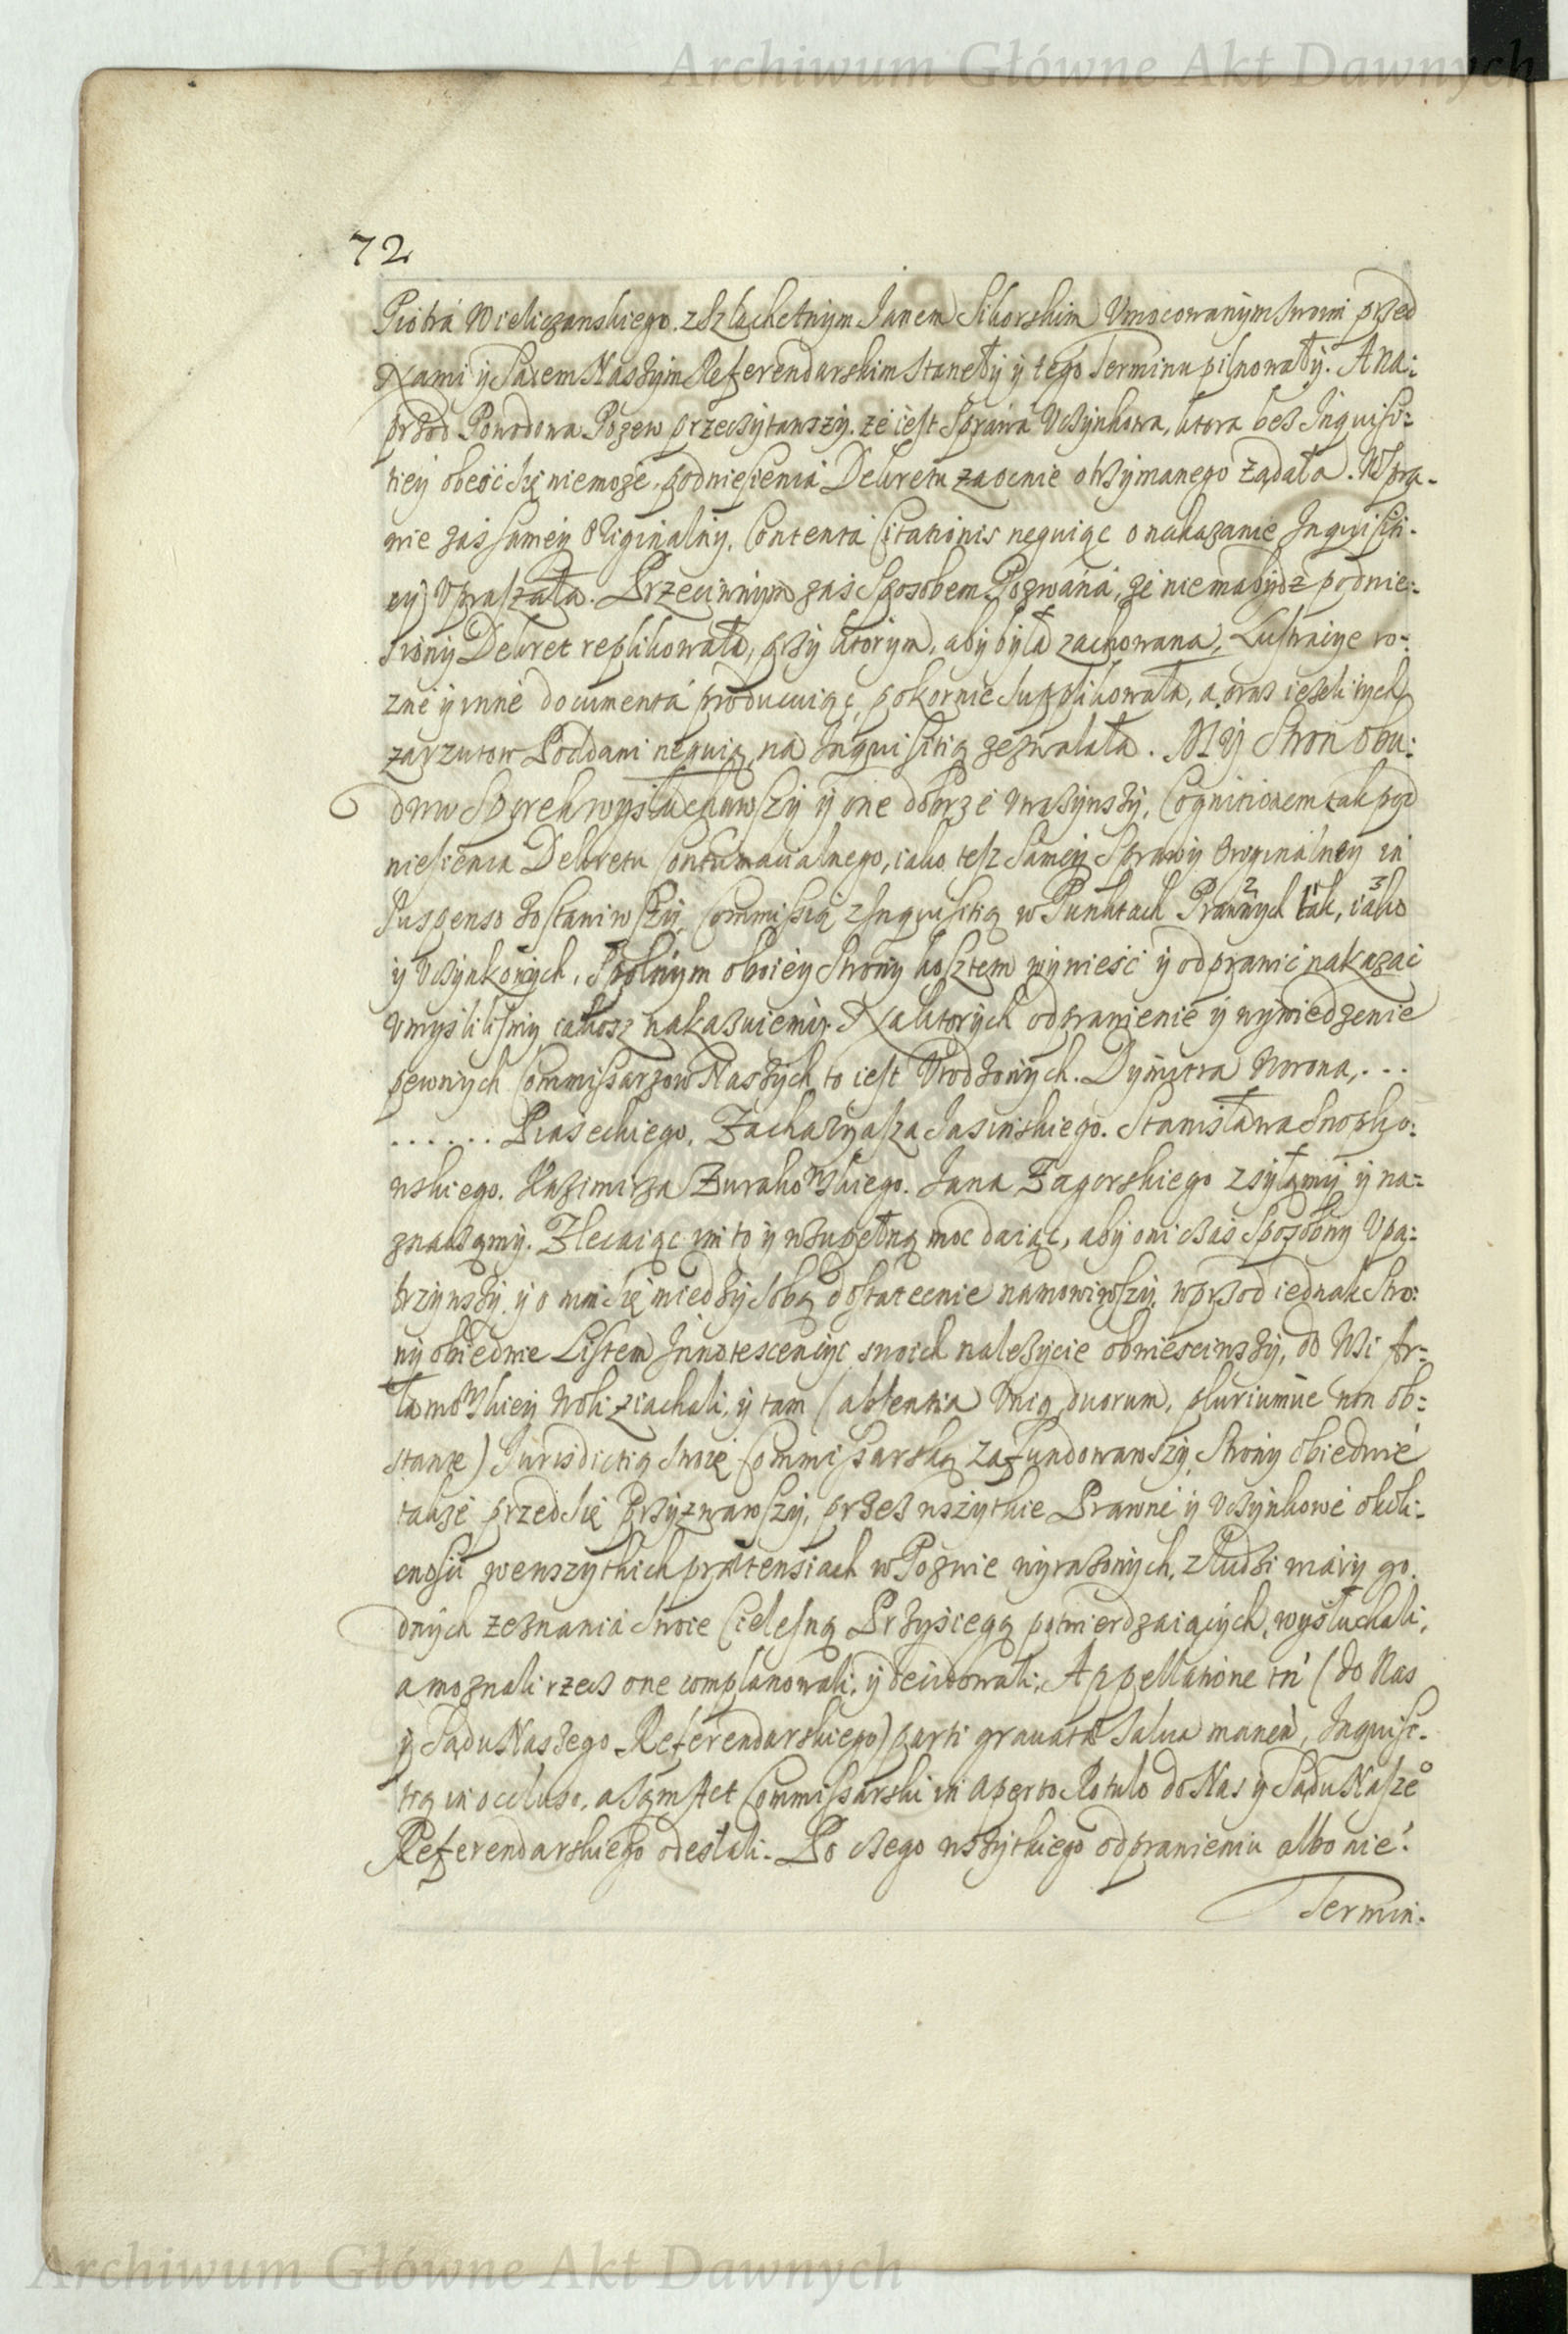 Archiwum Główne Akt Dawnych
72
Piotra Wieliczanskiego z Szlachetnym Janem Sikorskim Vmocowanym swoim przed
Nami y Sądem Naszym Referendarskim stanęły y tego Terminu pilnowały. A na:
przod Powodowa Pozew przeczytawszy, że iest Sprawa Vczynkowa, ktora bez Inquisi:
tiey obeść się niemoże, podniesienia Dekretu zaocnie otrzymanego żądała. W Spra-
wie zaś samey Originalny, Contenta Citationis neguiąc o nakazanie Inquisiti-
ey vpraszała. Przeciwnym zaś sposobem Pozwana, że niema bydz podnie:
siony Dekret replikowała, przy ktorym, aby była zachowana, Lustracye ro:
zne y inne documenta producuiąc, pokornie supplikowała, a oraz ieżeli tych
zarzutow Poddani neguią, na Inquisitią zezwalała. My Stron obu:
dwu Sporek wysłuchawszy y one dobrze vważywszy, Cognitionem tak pod
niesienia Dekretu Contumacialnego, iako tesz samey Sprawy Oryginalney in
suspenso zostawiwszy, Commissią z Inquisitią w Punktach Prawnych 2 tak, 1 iako 3
y Vczynkowych, Spolnym oboiey Strony kosztem wynieść y odprawić nakazać
vmyśliliśmy iakosz nakazuiemy. Na ktorych odprawienie y wywiedzenie
pewnych Commissarzow Naszych to iest Vrodzonych. Dymitra Worona, . . .
. . . . . . Piaseckiego, Zacharyasza Jasinskiego. Stanisława Snopko:
wskiego. Kazimirza Zurakowskiego. Jana Zagorskiego zsyłamy y na:
znaczamy. Zlecaiąc im to y wzupełną moc daiąc, aby oni czas sposobny vpa:
trzywszy y o nim się miedzy sobą dostatecnie namowiwszy, wprzod iednak Stro:
ny obiedwie Listem Innotescencyi swoich należycie obwieściwszy, do Wsi Ar:
łamowskiey Woli ziachali, y tam (absentia Vnius, duorum, pluriumue non ob:
stante) Jurisdictią swoię Commissarską zafundowawszy, Strony obiedwie
także przed się przyzwawszy, przez wszytkie Prawne y Vczynkowe okoli:
cnosci wewszytkich prætensiach w Pozwie wyrażonych, z ludzi wiary go:
dnych zeznania swoie Cielesną Przysięgą potwierdzaiących, wysłuchali,
a moznali rzecz one complanowali, y decidowali, Appellatione tn (do Nas
y Sądu Naszego Referendarskiego) parti gravatæ salva manen, Inquisi-
tią in occluso, a sąm Act Commissarski in aperto Rotulo do Nas y Sądu Naszeo
Referendarskiego odesłali. Po czego wszytkiego odprawieniu albo nie:
Termin:
Archiwum Główne Akt Dawnych